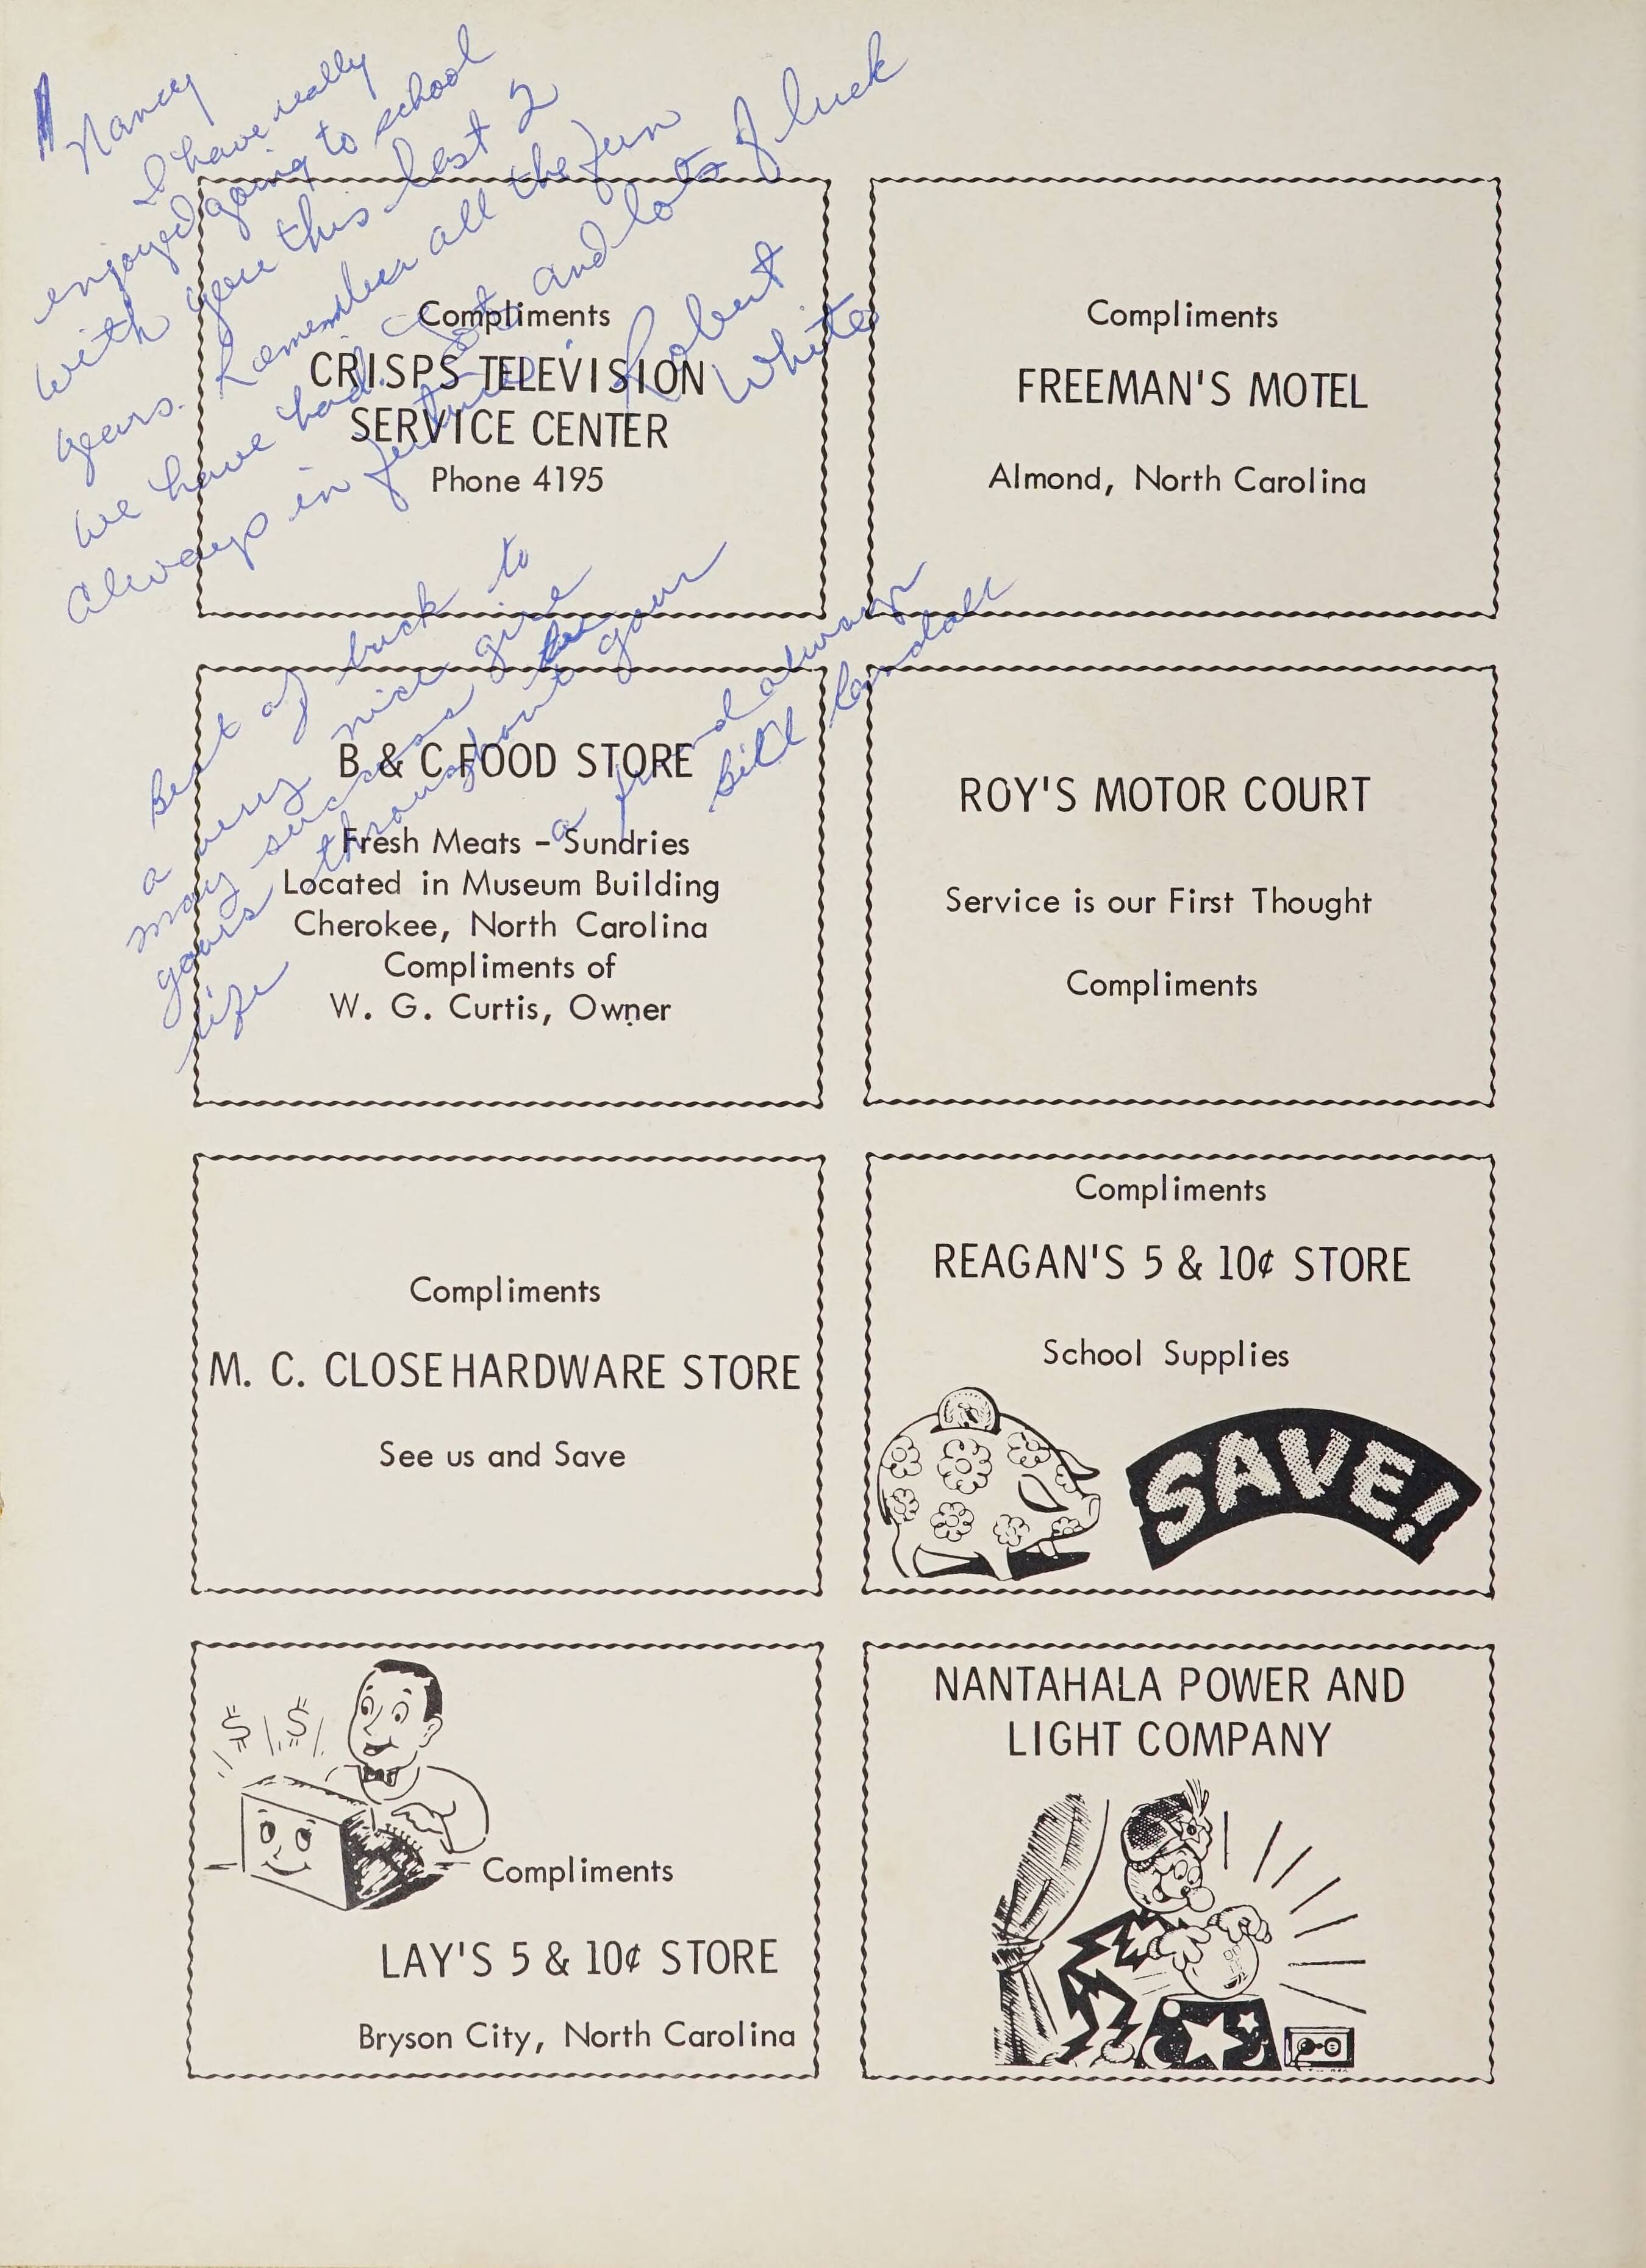 Nancy
I have really
enjoyed going to school
with you this last 2
years. Remember all the fun
we have had. and lots of luck
Always in future
Robert
White
Compliments
CRISPS TELEVISION
SERVICE CENTER
Phone 4195
Compliments
FREEMAN'S MOTEL
Almond, North Carolina
Best of luck to
a very nice girl
may success be
yours throughout your
life
a friend always
Bill
B & C FOOD STORE
Fresh Meats - Sundries
Located in Museum Building
Cherokee, North Carolina
Compliments of
W. G. Curtis, Owner
ROY'S MOTOR COURT
Service is our First Thought
Compliments
Compliments
M. C. CLOSE HARDWARE STORE
See us and Save
Compliments
REAGAN'S 5 & 10¢ STORE
School Supplies
SAVE!
$ $
Compliments
LAY'S 5 & 10¢ STORE
Bryson City, North Carolina
NANTAHALA POWER AND
LIGHT COMPANY